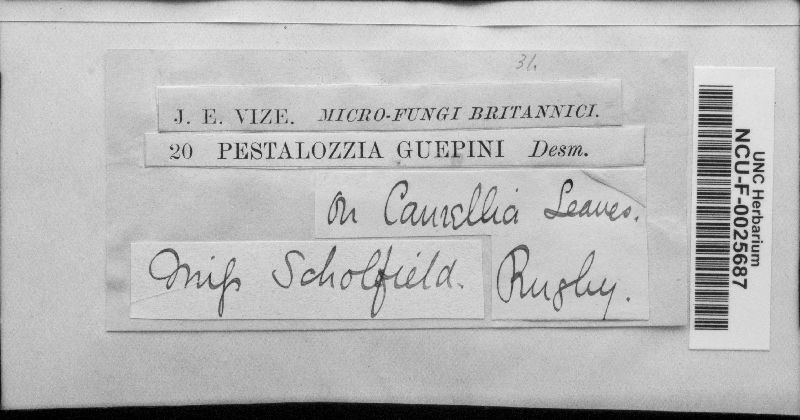 31.
J. E. VIZE. MICRO-FUNGI BRITANNICI.
20 PESTALOZZIA GUEPINI Desm.
On Camellia Leaves.
Miſs Scholfield. Rugby.
UNC Herbarium
NCU-F-0025687